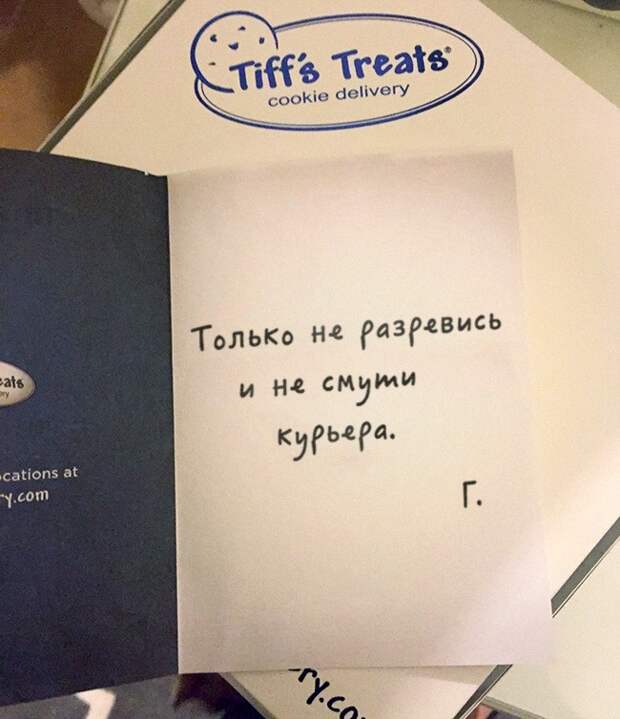 Tiff's Treats®
cookie delivery
Только не разревись
и не смути
курьера.
Г.
ats
ry
cations at
y.com
ry.co